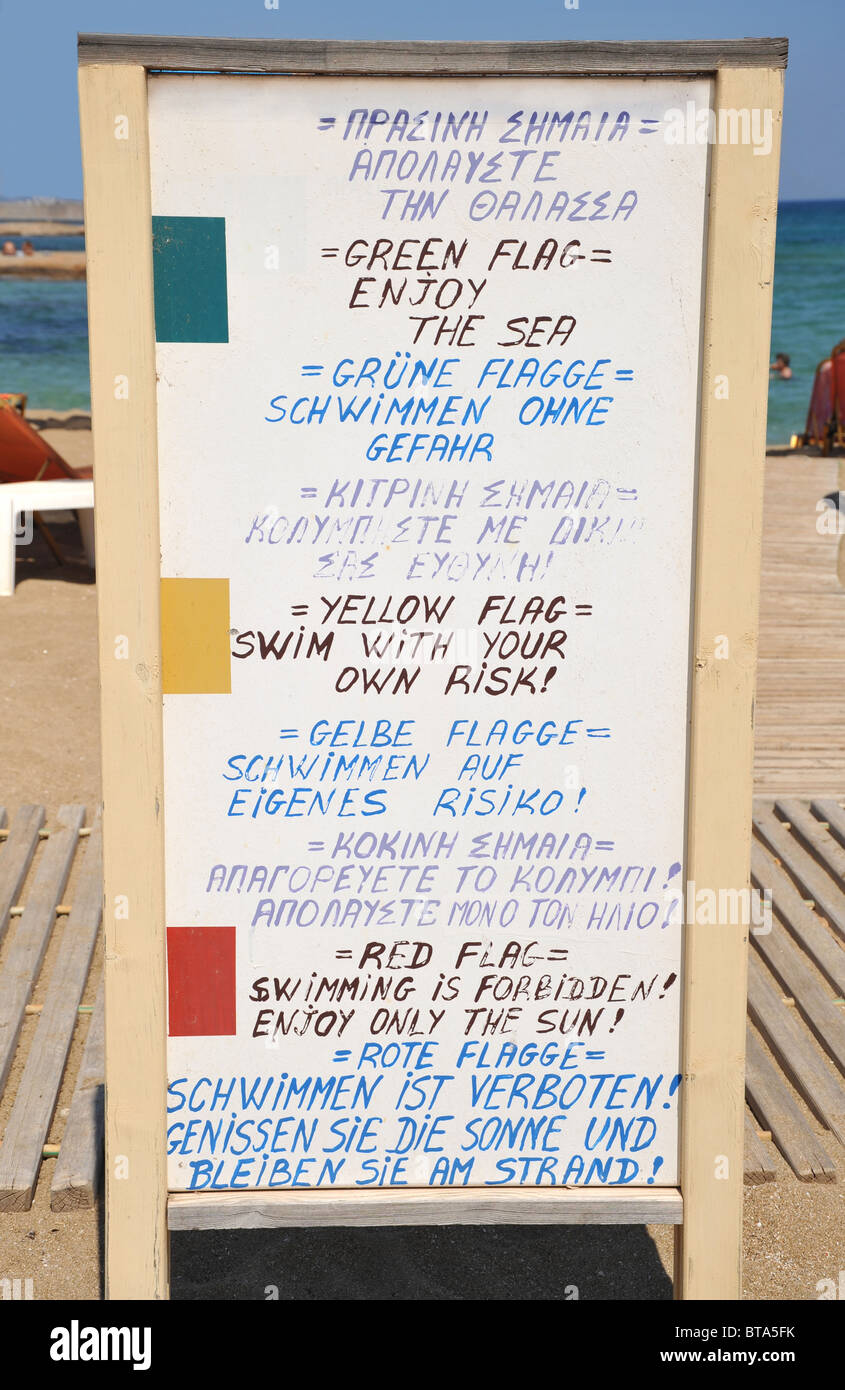 =ΠΡΑΣΙΝΗ ΣΗΜΑΙΑ=
ΑΠΟΛΑΥΣΤΕ
ΤΗΝ ΘΑΛΑΣΣΑ
=GREEN FLAG=
ENJOY
THE SEA
=GRÜNE FLAGGE=
SCHWiMMEN OHNE
GEFAHR
=ΚΙΤΡΙΝΗ ΣΗΜΑΙΑ=
ΚΟΛΥΜΠΗΣΤΕ ΜΕ
ΣΑΣ ΕΥΘΥΝΗ!
=YELLOW FLAG=
SWiM WiTH YOUR
OWN RiSK!
=GELBE FLAGGE=
SCHWiMMEN AUF
EiGENES RiSiKO!
=ΚΟΚΙΝΗ ΣΗΜΑΙΑ=
ΑΠΑΓΟΡΕΥΕΤΕ ΤΟ ΚΟΛΥΜΠΙ!
ΑΠΟΛΑΥΣΤΕ ΜΟΝΟ ΤΟΝ ΗΛΙΟ!
=RED FLAG=
SWiMMiNG iS FORBiDDEN!
ENJOY ONLY THE SUN!
=ROTE FLAGGE=
SCHWiMMEN iST VERBOTEN!
GENiSSEN SiE DiE SONNE UND
BLEiBEN SiE AM STRAND!
alamy
alamy
Image ID: BTA5FK
www.alamy.com